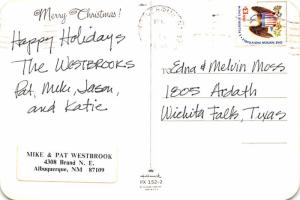 Merry Christmas!
Happy Holidays
The WESTBROOKS
Pat, Mike, Jason,
and Katie
MIKE & PAT WESTBROOK
4308 Brand N. E.
Albuquerque, NM 87109
Hallmark
PX 152-2
13c
To:
Edna & Melvin Moss
1805 Ardath
Wichita Falls, Texas